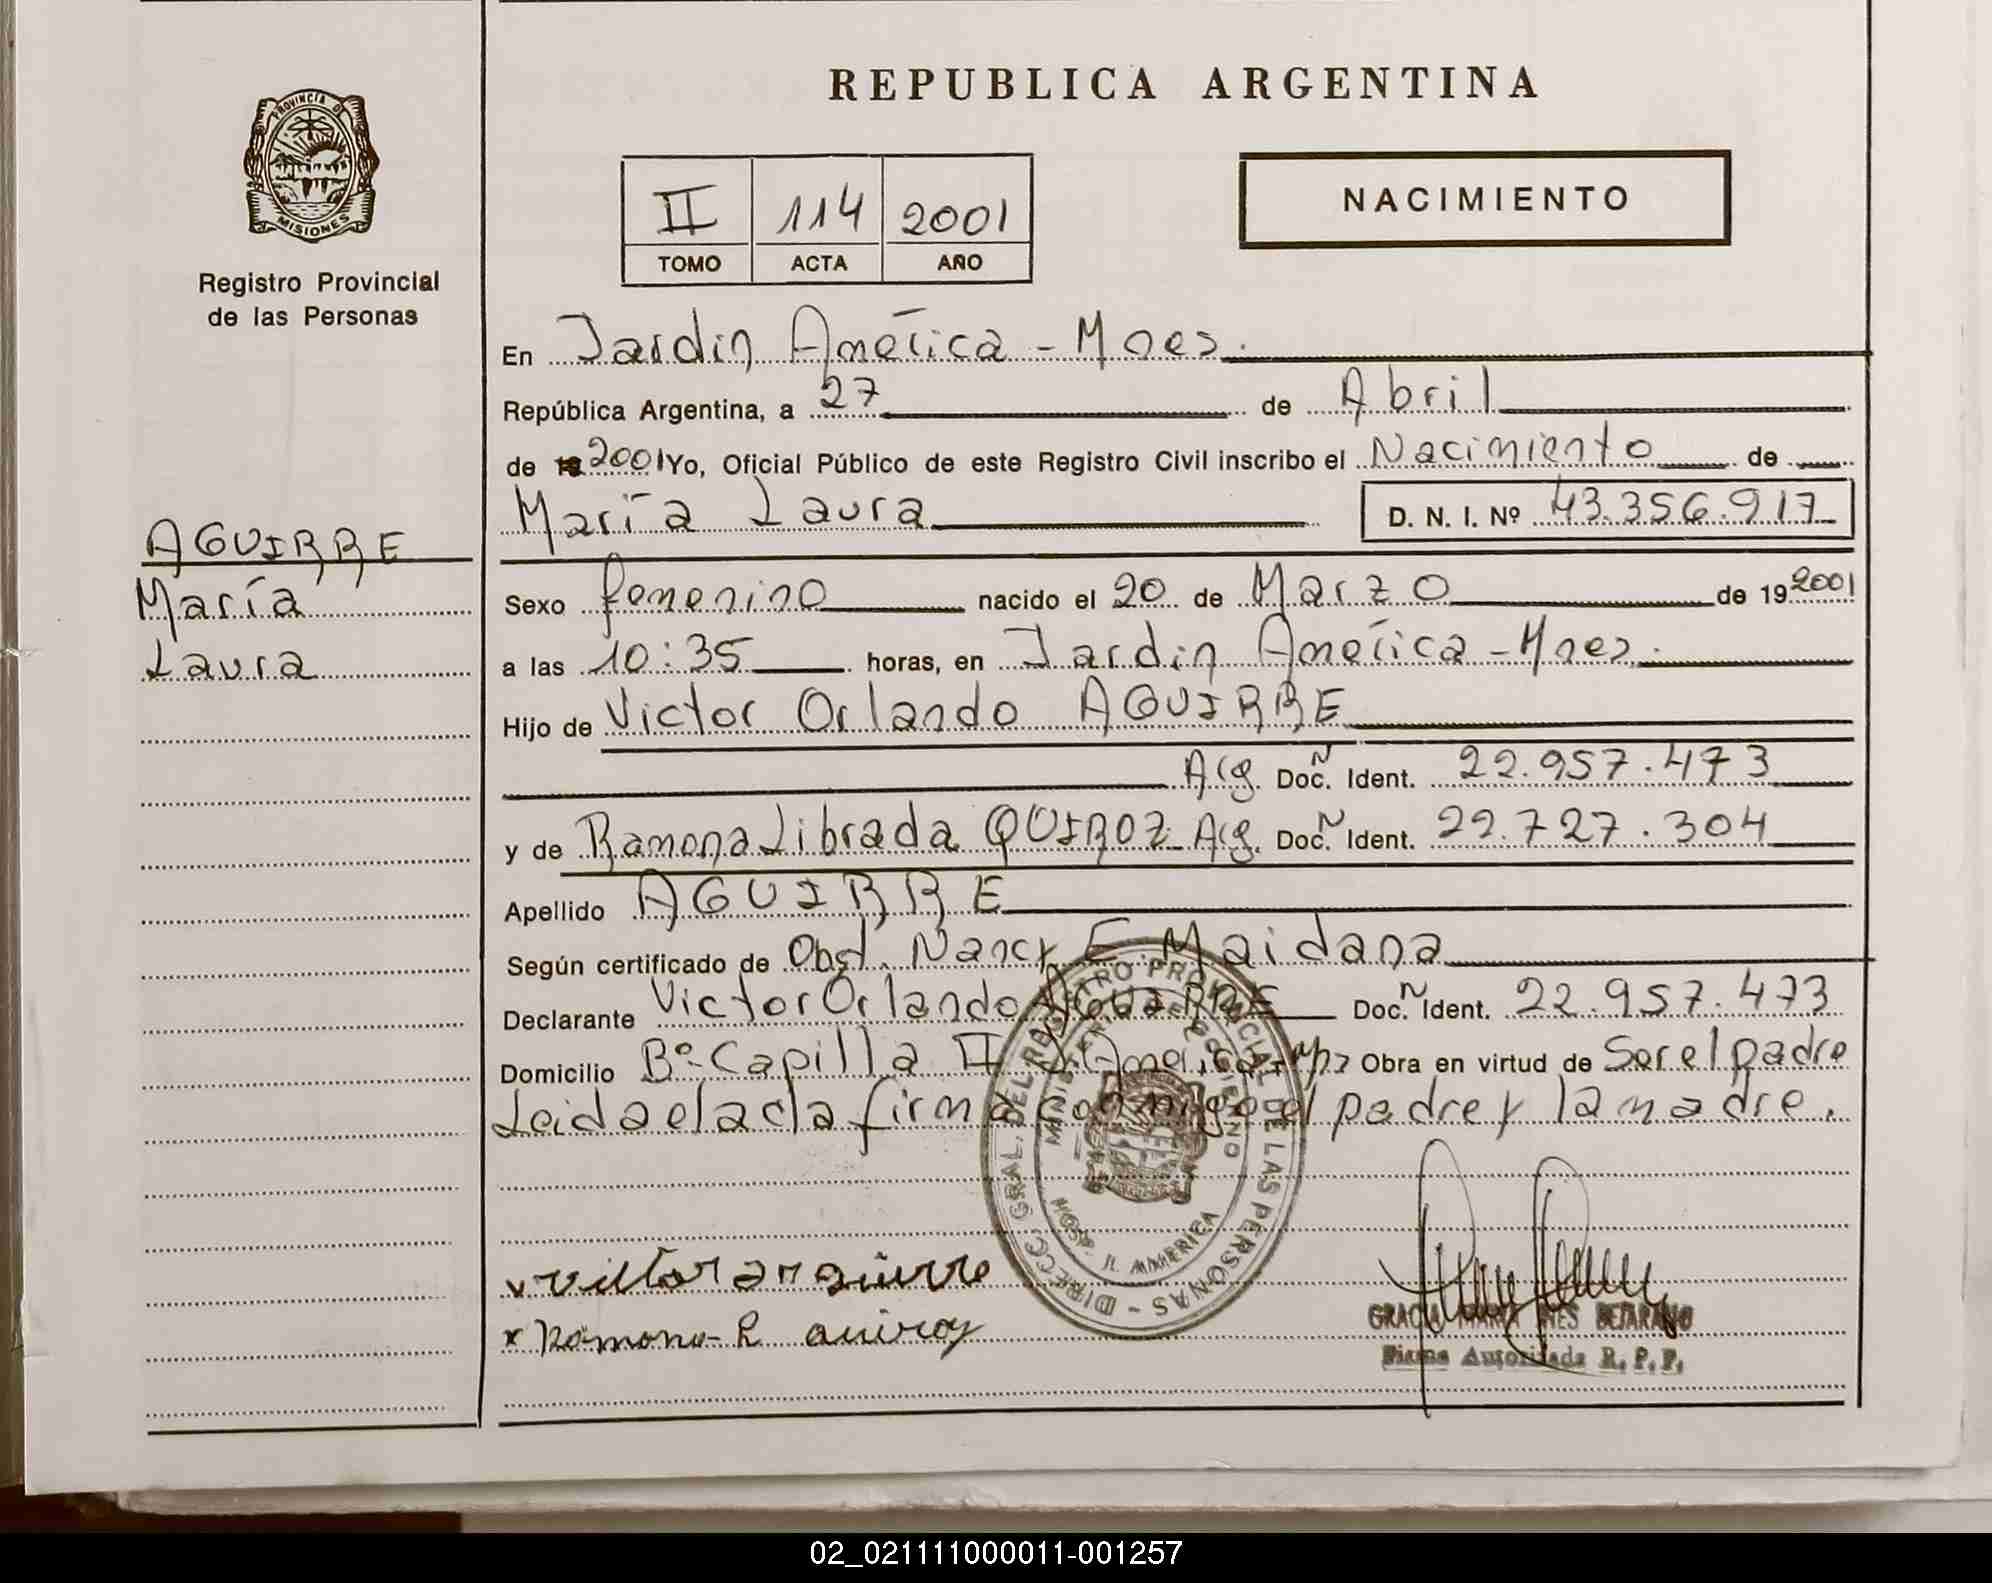 REPUBLICA ARGENTINA
PROVINCIA DE
MISIONES
Registro Provincial
de las Personas
II 114 2001
TOMO ACTA AÑO
NACIMIENTO
En Jardín América - Mnes.
República Argentina, a 27 de Abril
de 19 2001 Yo, Oficial Público de este Registro Civil inscribo el Nacimiento de
María Laura D. N. I. Nº 43.356.917
AGUIRRE
María
Laura
Sexo femenino nacido el 20 de Marzo de 19 2001
a las 10:35 horas, en Jardín América - Mnes.
Hijo de Victor Orlando AGUIRRE
Arg. Doc. N Ident. 22.957.473
y de Ramona Librada QUIROZ Arg. Doc. N Ident. 22.727.304
Apellido AGUIRRE
Según certificado de Obst. Nancy E. Maidana
Declarante Victor Orlando AGUIRRE Doc. N Ident. 22.957.473
Domicilio Bº Capilla II J. América - Mnes Obra en virtud de Ser el padre
Leida el acta firma conmigo el padre y la madre.
DIRECC. GRAL. DEL REGISTRO PROVINCIAL DE LAS PERSONAS -
MINISTERIO DE GOBIERNO
HOSP. J. AMERICA
x Victor aguirre
x Ramona L quiroz
GRACIA MARIA INES BEJARANO
Firma Autorizada R. P. P.
02_021111000011-001257